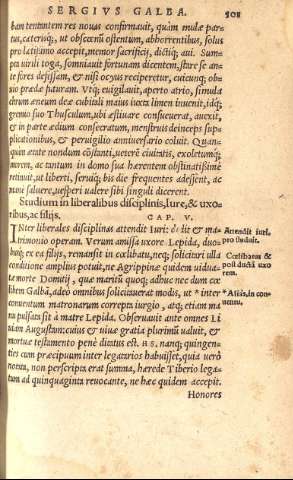 SERGIVS GALBA. 501
bam tentantem res nouas confirmauit, quàm mulæ par-
tus, cæterisq́; ut obscœnũ ostentum, abhorrentibus, solus
pro lætissimo accepit, memor sacrificij, dictiq́; aui. Sum-
pta uirili toga, somniauit fortunam dicentem, stare se an-
te fores defessam, & nisi ocyus reciperetur, cuicunq; ob-
uio prædæ futuram. Vtq; euigilauit, aperto atrio, simula
chrum æneum deæ cubitali maius iuxta limen inuenit, idq;
gremio suo Thusculum, ubi æstiuare consueuerat, auexit,
& in parte ædium consecratum, menstruis deinceps sup-
plicationibus, & peruigilio anniuersario coluit. Quan-
quam ætate nondum cõstanti, ueterẽ ciuitatis, exoletumq;
morem, ac tantum in domo sua hærentem obstinatißimè
retinuit, ut liberti, seruiq; bis die frequentes adessent, ac
manè saluere, uesperi ualere sibi singuli dicerent.
Studium in liberalibus disciplinis, Iure, & uxo-
ribus, ac filijs. CAP. V.
INter liberales disciplinas attendit Iuri: dedit & ma-
trimonio operam. Verum amissa uxore Lepida, duo-
busq; ex ea filijs, remansit in cœlibatu, neq; solicitari ulla
conditione amplius potuit, ne Agrippinæ quidem uidua-
tæ morte Domitij, quæ maritũ quoq; adhuc nec dum cœ
libem Galbã, adeò omnibus solicitauerat modis, ut * inter
conuentum matronarum correpta iurgio, atq; etiam ma
nu pulsata sit à matre Lepida. Obseruauit ante omnes Li
uiam Augustam: cuius & uiuæ gratia plurimũ ualuit, &
mortuæ testamento penè ditatus est. HS. nanq; quingen-
ties cùm præcipuum inter legatarios habuisset, quia uerò
notata, non perscripta erat summa, hærede Tiberio lega-
tum ad quinquaginta reuocante, ne hæc quidem accepit.
Honores
Attendit iuri,
pro studuit.
Cœlibatus &
post ductã uxo
rem.
* Aliàs, in con-
uentu.